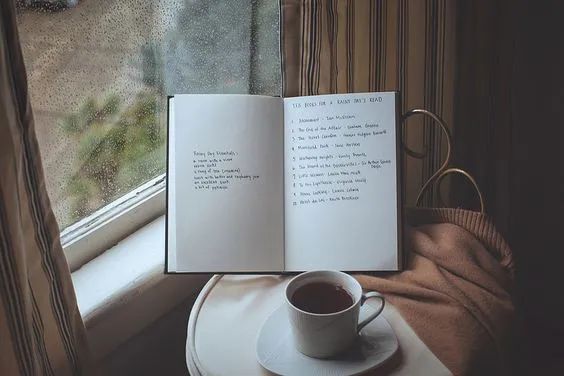 Rainy Day Essentials:
a room with a view
warm socks
a mug of tea (steaming)
toast with butter and raspberry jam
an excellent book
a bit of patience
TEN BOOKS FOR A RAINY DAY'S READ
1. Atonement - Ian McEwan
2. The End of the Affair - Graham Greene
3. The Secret Garden - Frances Hodgson Burnett
4. Mansfield Park - Jane Austen
5. Wuthering Heights - Emily Bronte
6. The Hound of the Baskervilles - Sir Arthur Conan
Doyle
7. Little Women - Louisa May Alcott
8. To the Lighthouse - Virginia Woolf
9.
10. Hotel du Lac - Anita Brookner